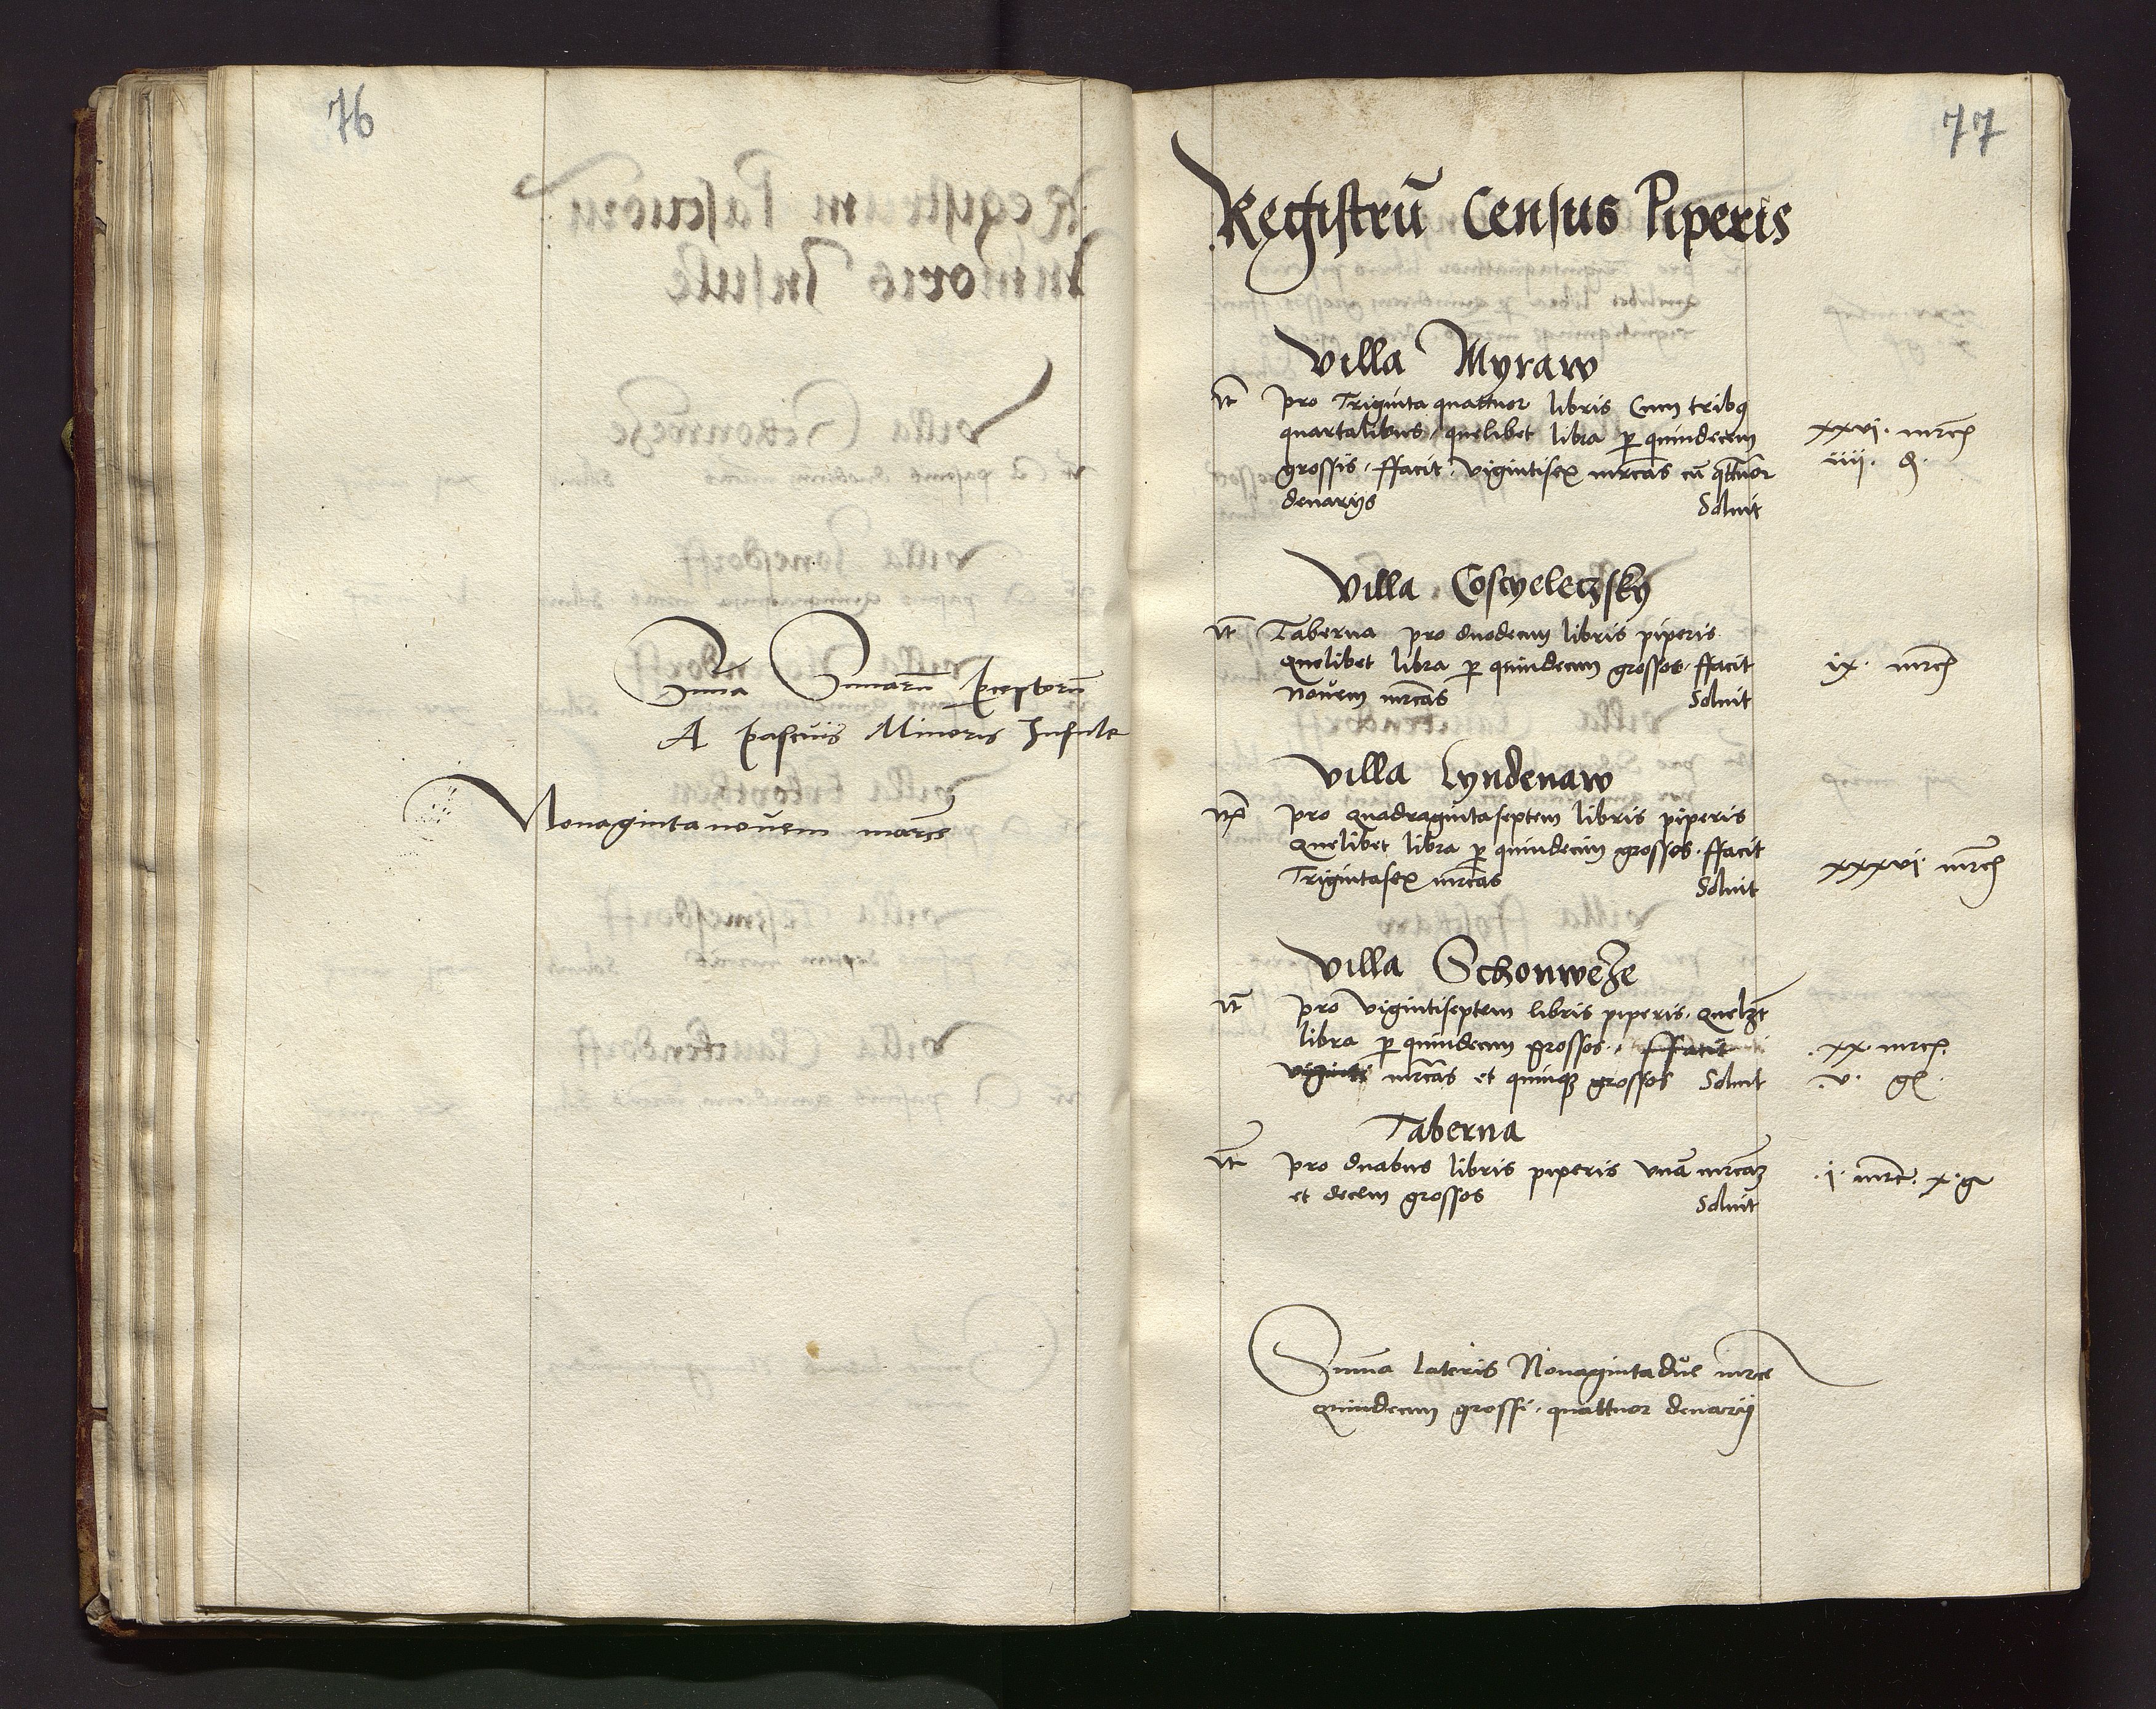 76
Suma Sumarū ꝑceptorū
A pascuis Minoris Insule
Nonagintanovem marce
77
Registrū Census Piperis
Villa Myraw
It pro Triginta quattuor libris Cum tribꝫ
quartalibus, quelibet libra ꝑ quindecem
grossis, ffacit, vigintisex mrcas cū qttuor
denarijs Soluit
xxvi mrc
iiii. d.
Villa Coscyeleczsky
It Taberna pro duodecim libris piperis
Quelibet libra ꝑ quindecim grossos, ffacit
Novem mrcas Soluit
ix. mrc
Villa Lyndenaw
Itꝫ pro quadragintaseptem libris piperis
Quelibet libra ꝑ quindecim grossos, ffacit
Trigintasex mrcas Soluit
xxxvi mrc
Villa Schonweze
It pro vigintiseptem libris piperis, quelꝫt
libra ꝑ quindecim grossos, ffacit
viginti mrcas et quinqꝫ grossos Soluit
.xx. mrc.
.v. g.
Taberna
It pro duabus libris piperis Unā mrcaꝫ
et decem grossos Soluit
.i. mrc. x. g
Suma Lateris Nonagintadue mrce
Quindecim grossi, quattuor denarij